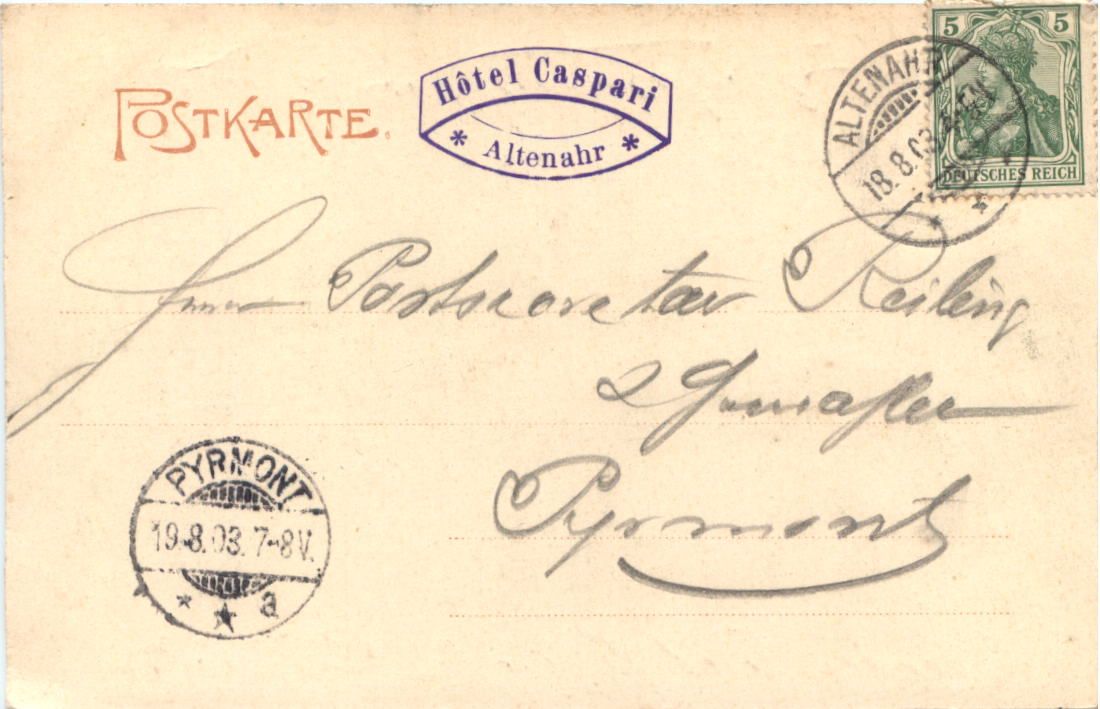 POSTKARTE.
Hôtel Caspari
* Altenahr *
5 5
DEUTSCHES REICH
ALTENAHR
18.8.03
Postsecretär Reiling
Pyrmont
PYRMONT
19.8.03. 7-8V.
* * a